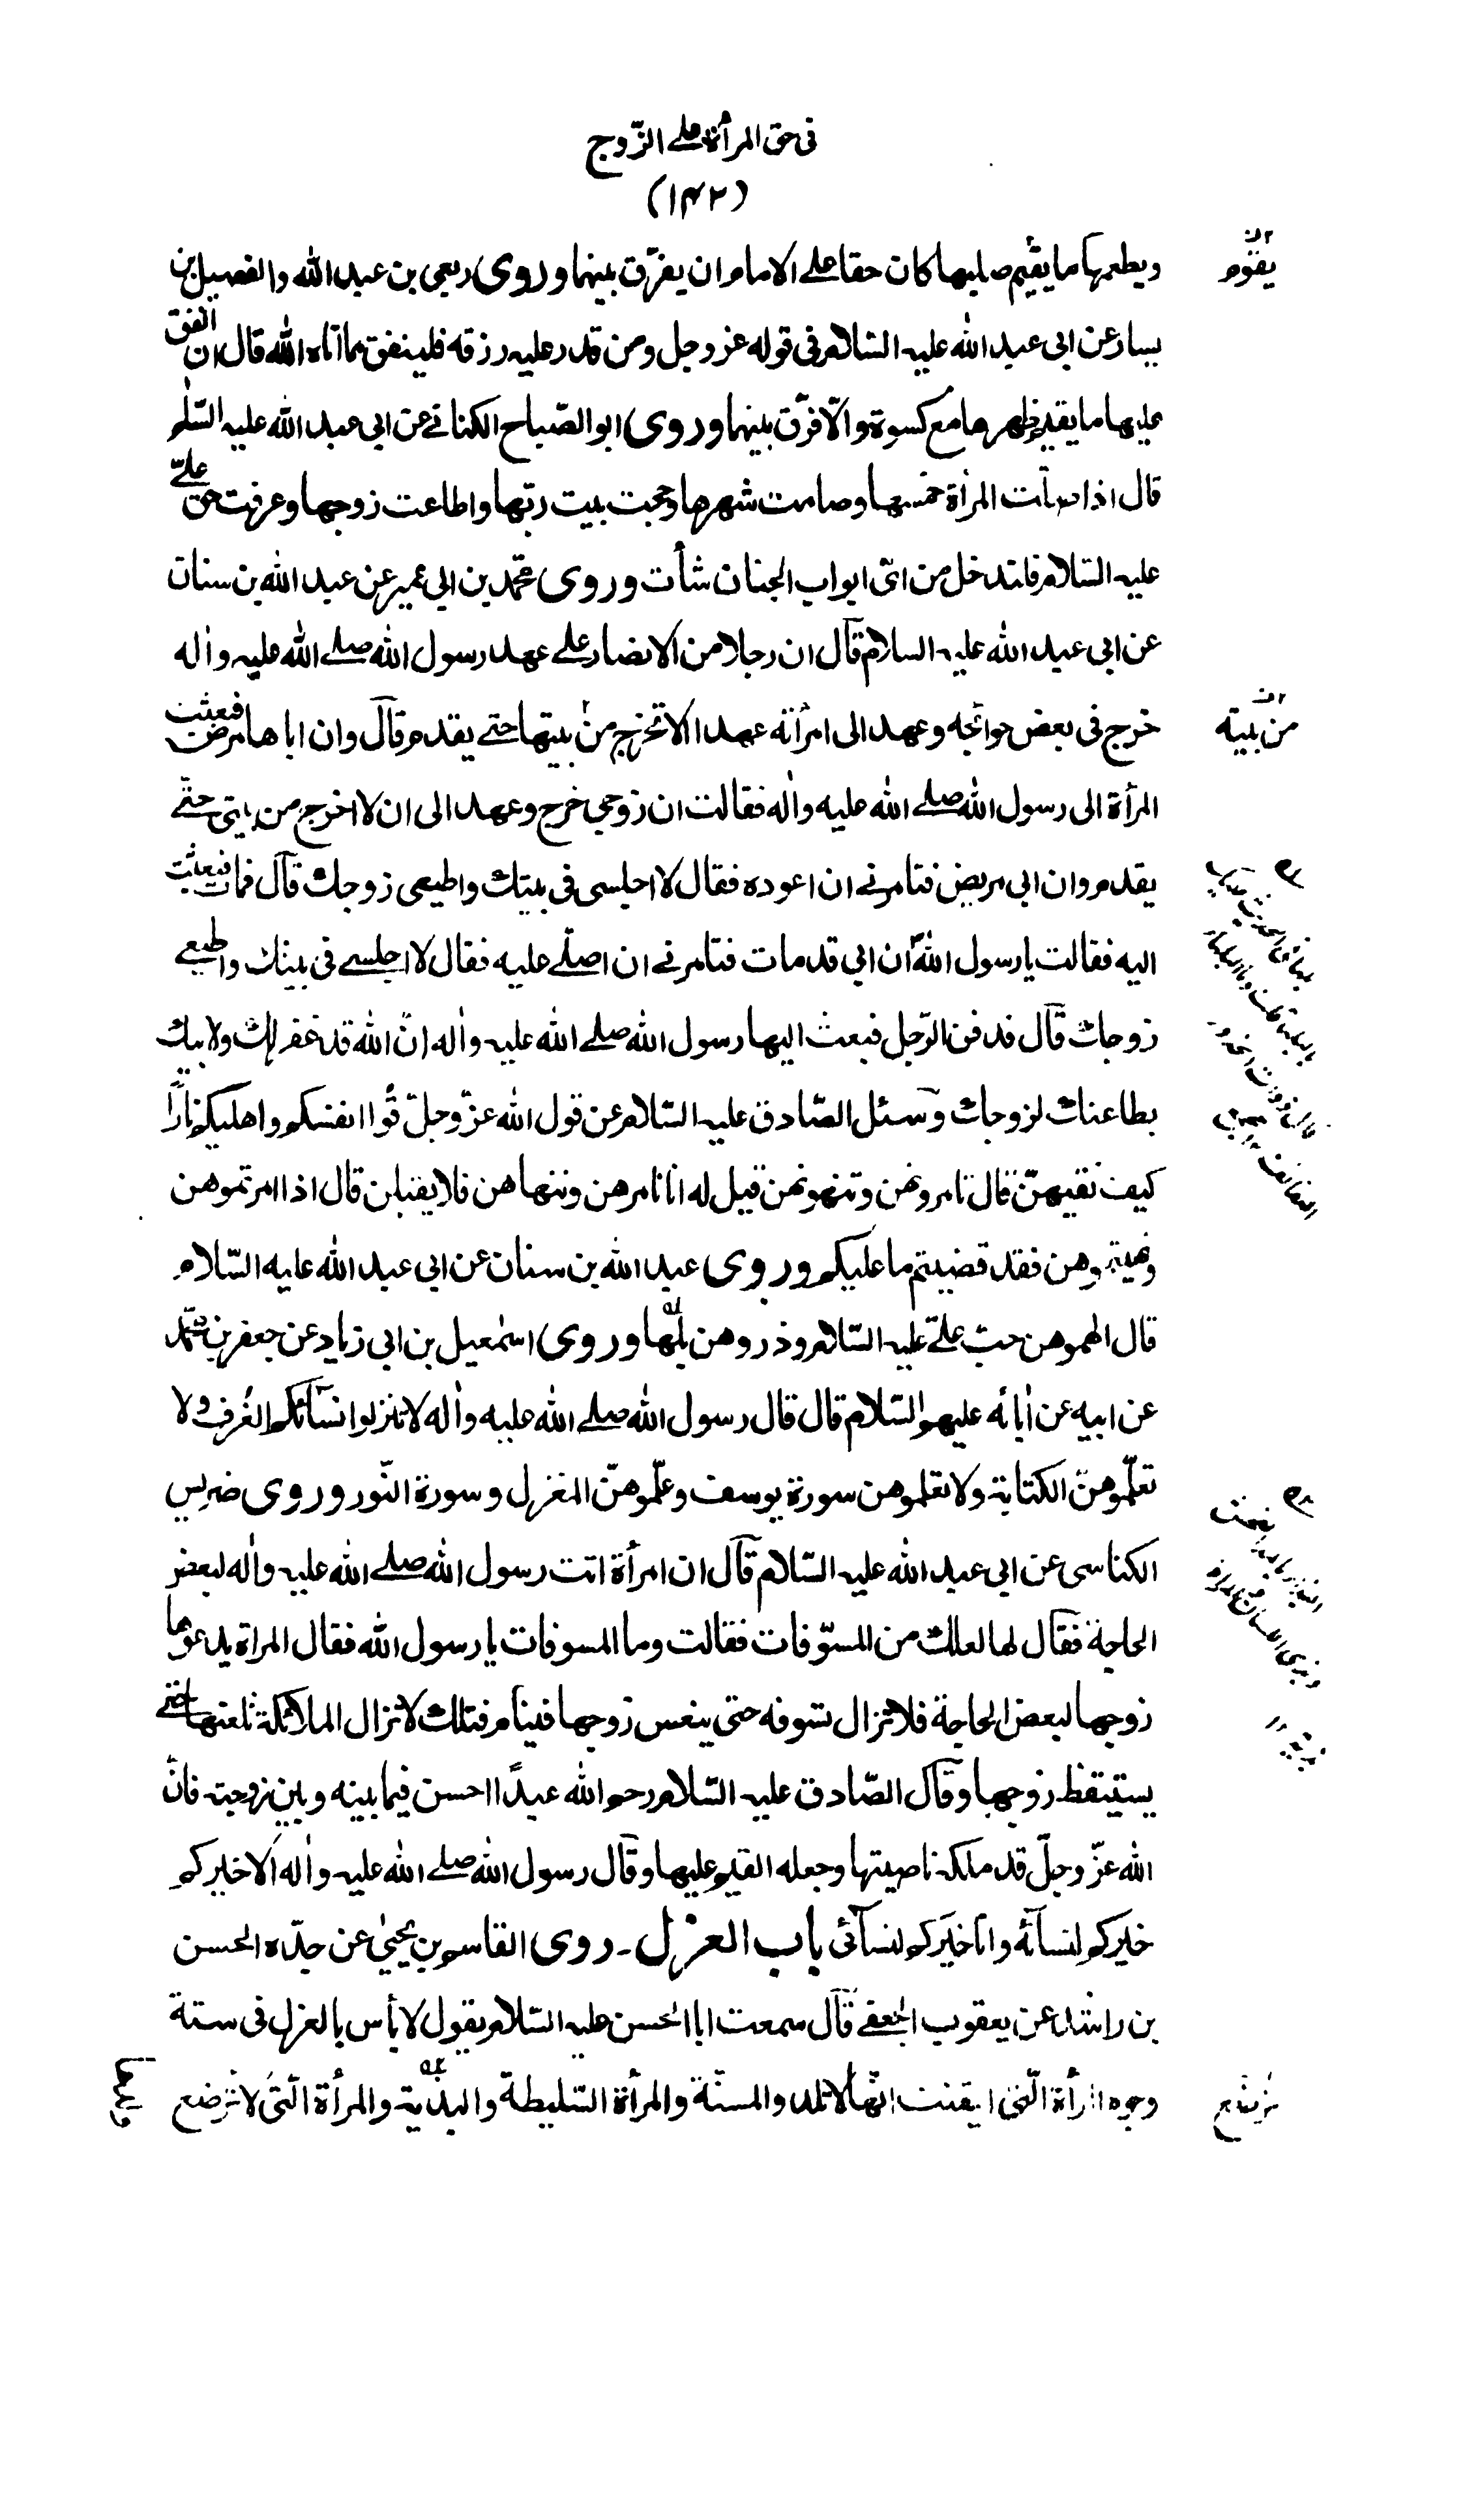 في حق المرأة على الزّوج
(١٤٢)
ويطعمها ما يقيم صلبها كان حقا على الامام ان يفرّق بينهما وروى ربعي بن عبد الله والفضيل بن
يسار عن ابي عبد الله عليه السّلام في قوله عز وجل ومن قدر عليه رزقه فلينفق مما اتاه الله قال ان انفق
عليها ما يقيم ظهرها مع كسوة والّا فرّق بينهما وروى ابو الصّباح الكناني عن ابي عبد الله عليه السّلم
قال اذا صلّت المرأة خمسها وصامت شهرها وحجت بيت ربّها واطاعت زوجها وعرفت حق عليّ
عليه السّلام فلتدخل من اىّ ابواب الجنان شأت وروى محمّد بن ابي عمير عن عبد الله بن سنان
عن ابي عبد الله عليه السلام قال ان رجلا من الانصار على عهد رسول الله صلى الله عليه واله
خرج في بعض حوائجه وعهد الى امرأته عهدا الا تخرج من بيتها حتى يقدم قال وان اباها مرض فبعثت
المرأة الى رسول الله صلى الله عليه واله فقالت ان زوجي خرج وعهد الى ان لا اخرج من بيتي حتّى
يقدم وان ابي مريض فتامرني ان اعوده فقال لا اجلسي في بيتك واطيعي زوجك قال فمات فبعثت
اليه فقالت يا رسول الله ان ابي قد مات فتامرني ان اصلّي عليه فقال لا اجلسي في بيتك واطيعي
زوجك قال فدفن الرّجل فبعث اليها رسول الله صلى الله عليه واله انّ الله قد غفر لك ولابيك
بطاعتك لزوجك وسئل الصّادق عليه السّلام عن قول الله عزّ وجلّ قُوا انفسكم واهليكم نارًا
كيف نقيهنّ قال تامرونهن وتنهونهن قيل له انا نامرهن وننهاهن فلا يقبلن قال اذا امرتموهن
ونهيتموهن فقد قضيتم ما عليكم وروى عبد الله بن سنان عن ابي عبد الله عليه السّلام
قال الهموهن حب عليّ عليه السّلام وذروهن بلّها وروى اسمٰعيل بن ابي زياد عن جعفر بن محمّد
عن ابيه عن اٰبائه عليهم السّلام قال قال رسول الله صلى الله عليه واٰله لا تنزلوا نسائكم الغُرف ولا
تعلّموهنّ الكتابة ولا تعلموهن سورة يوسف وعلّموهنّ المغزل وسورة النّور وروى ضريس
الكناسى عن ابي عبد الله عليه السّلام قال ان امرأة اتت رسول الله صلى الله عليه واٰله لبعض
الحاجة فقال لها لعلك من المسوّفات فقالت وما المسوفات يا رسول الله فقال المراة يدعوها
زوجها لبعض الحاجة فلا تزال تسوفه حتى ينعس زوجها فينام فتلك لا تزال الملائكة تلعنها حتى
يستيقظ زوجها وقال الصّادق عليه السّلام رحم الله عبدًا احسن فيما بينه وبين زوجته فانّ
الله عزّ وجلّ قد ملكه ناصيتها وجعله القيم عليها وقال رسول الله صلى الله عليه واٰله الا خيركم
خيركم لنسائه وانا خيركم لنسائى باب العزل ـ روى القاسم بن يحيىٰ عن جدّه الحسن
بن راشد عن يعقوب الجعفى قال سمعت ابا الحسن عليه السّلام يقول لا بأس بالعزل في ستة
وجوه المرأة الّتي ايقنت انّها لا تلد والمسنّة والمرأة السّليطة والبذية والمرأة الّتي لا ترضع
يقوم
من بيته
ترتضع